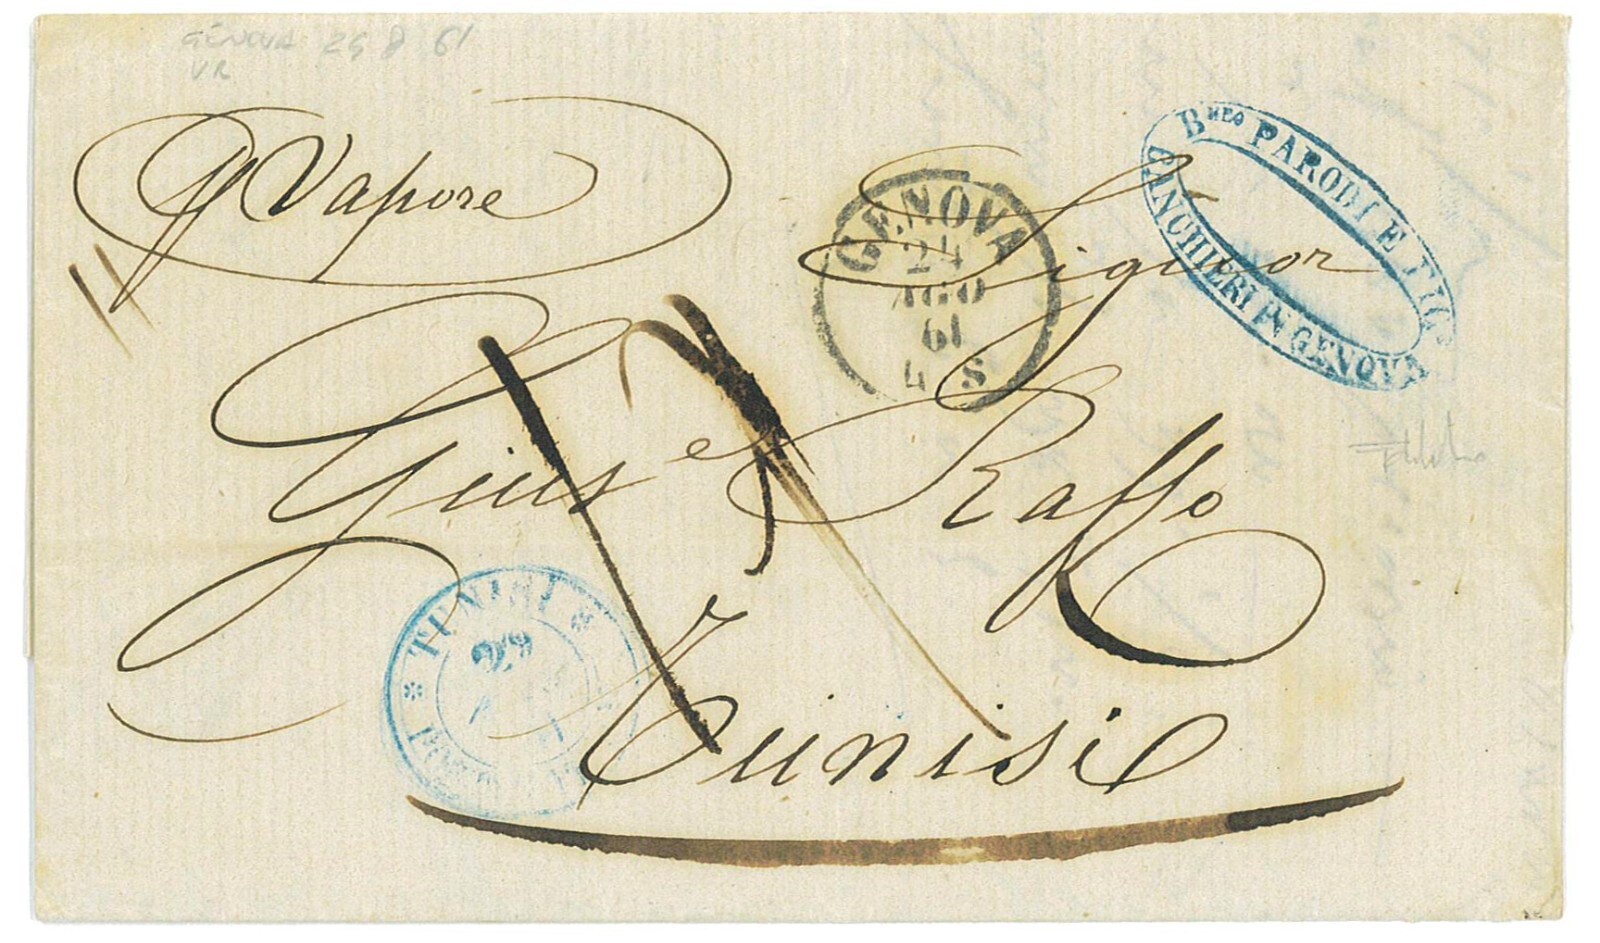 GENOVA 29 8 61
VR
p Vapore
GENOVA
24
AGO
61
4 S
B MEO PARODI E FIG
BANCHIERI IN GENOVA
Signor
Gius e Raffo
Tunisi
TUNISI
29